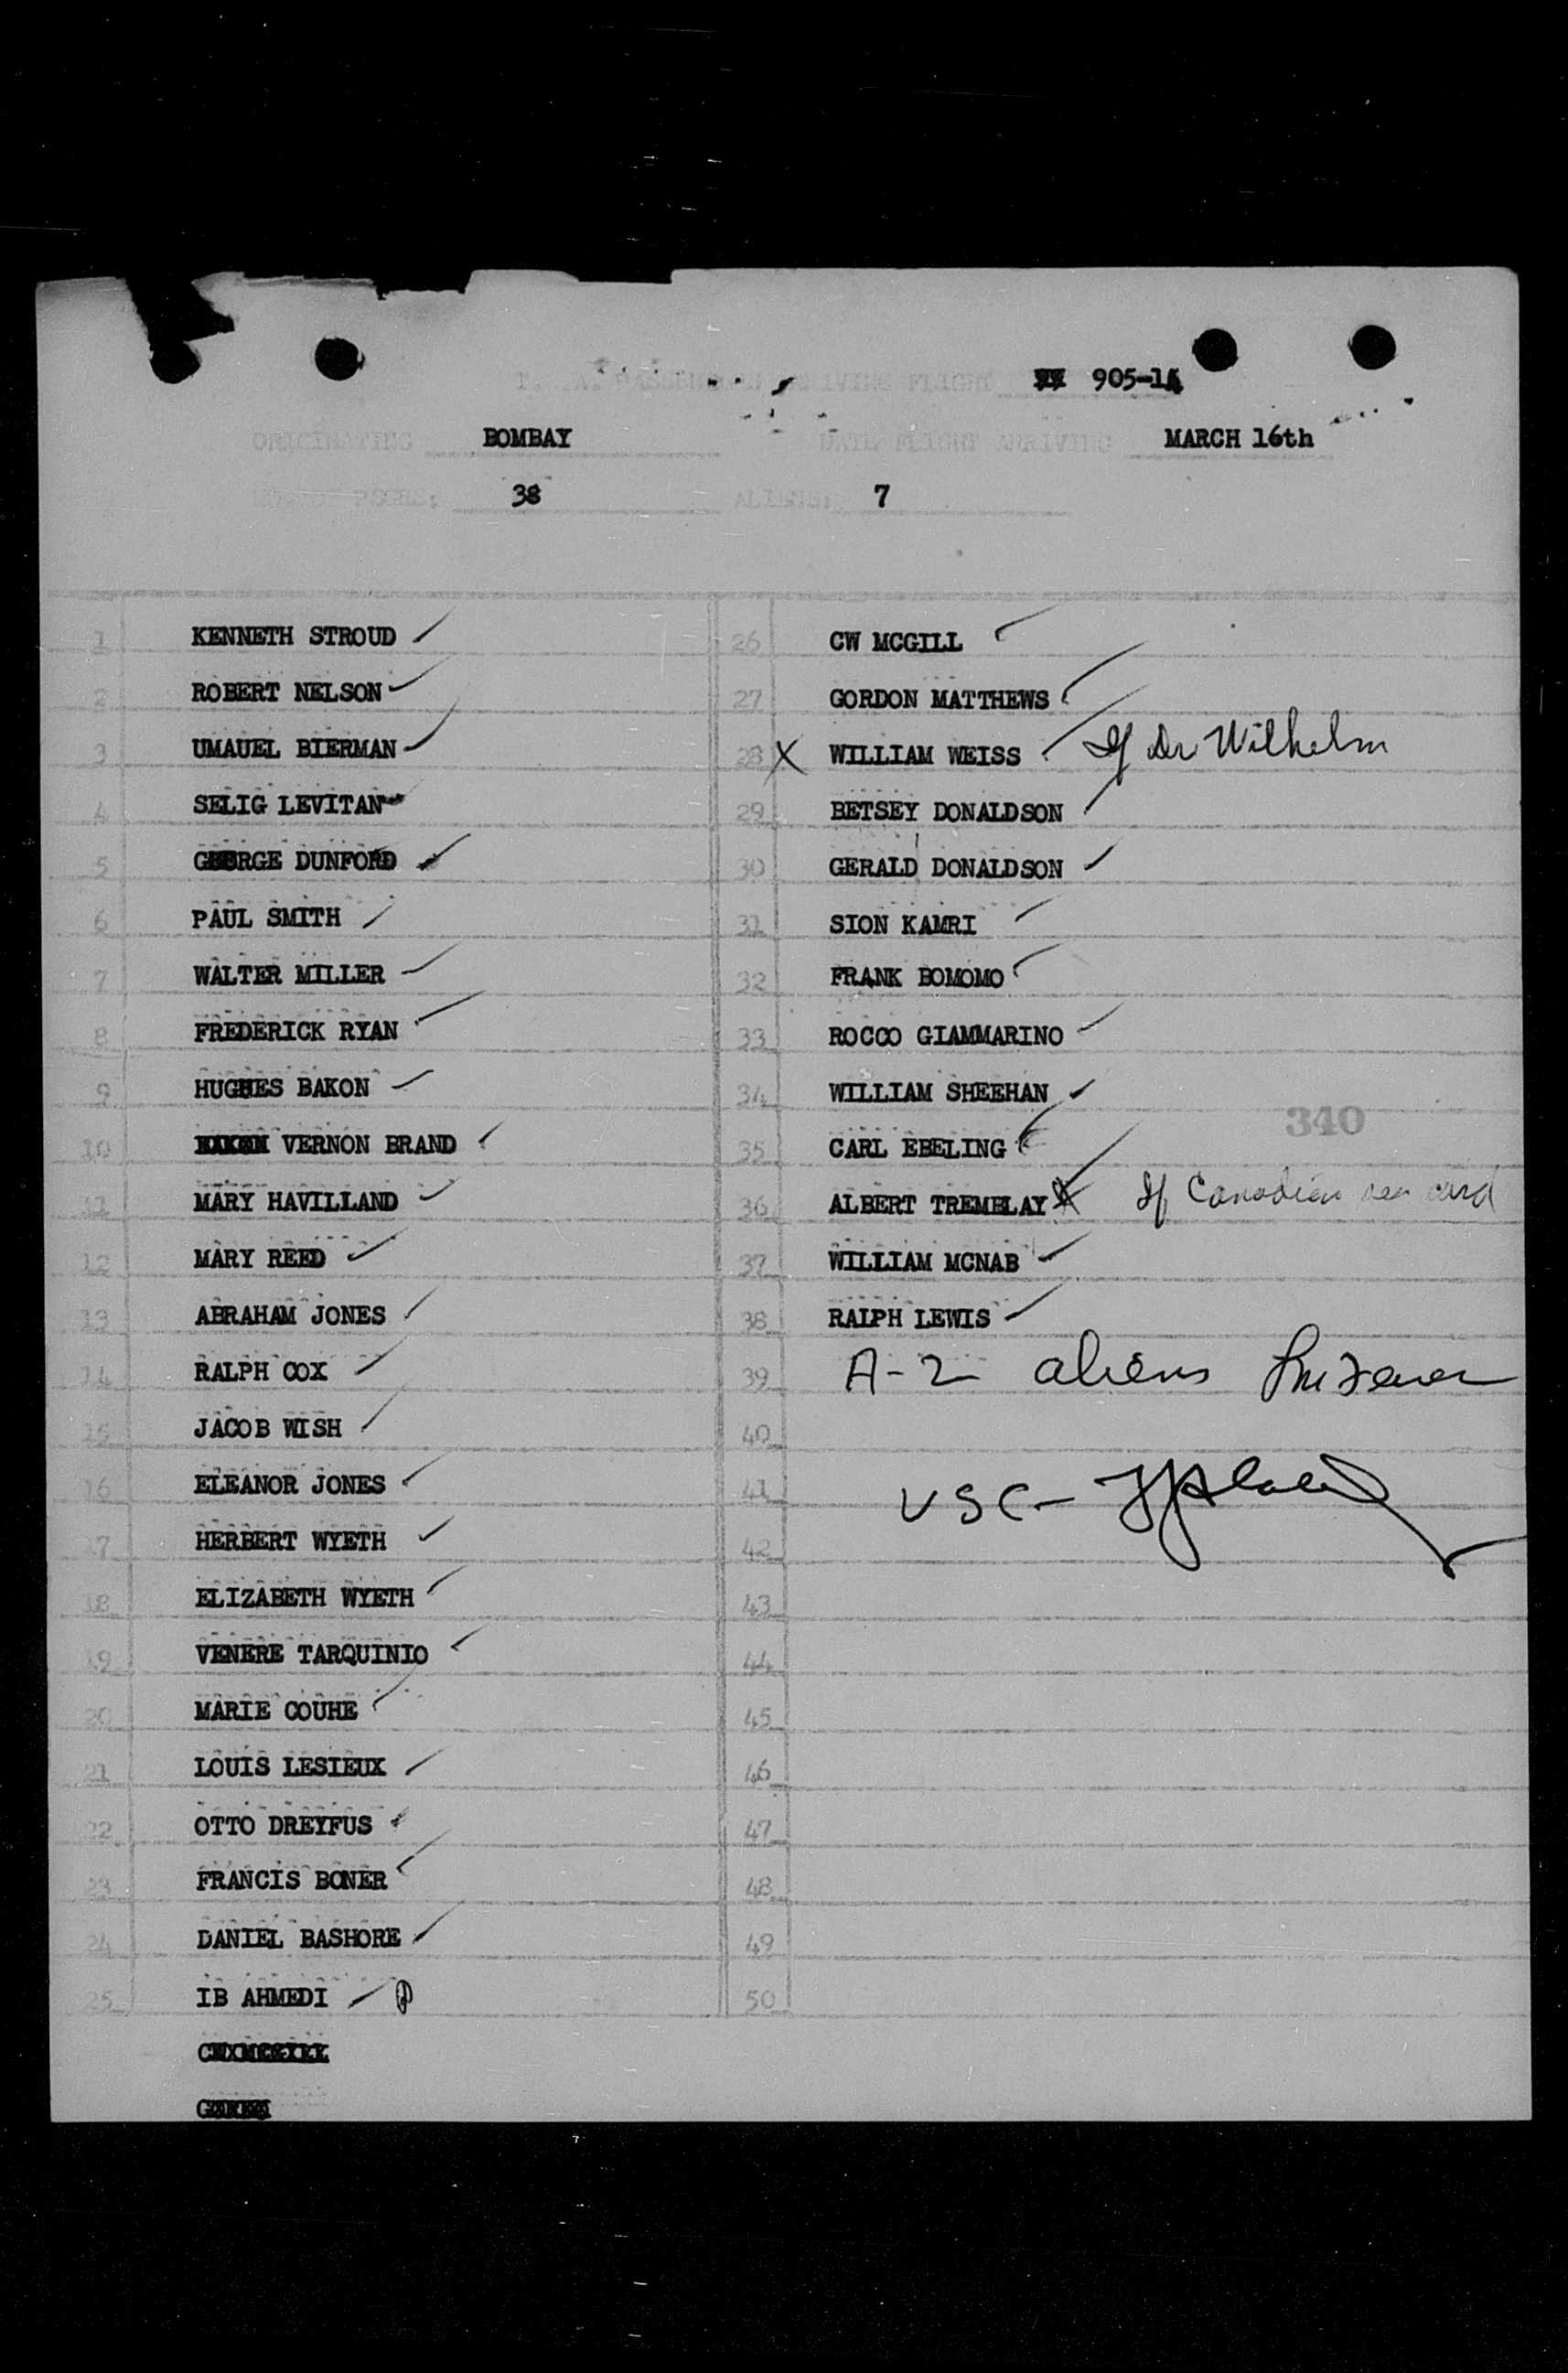 PASSENGERS ARRIVING FLIGHT 905-14
ORIGINATING BOMBAY DATE FLIGHT ARRIVING MARCH 16th
PSGRS: 38 ALIENS: 7
1 KENNETH STROUD
2 ROBERT NELSON
3 UMAUEL BIERMAN
4 SELIG LEVITAN
5 GEORGE DUNFORD
6 PAUL SMITH
7 WALTER MILLER
8 FREDERICK RYAN
9 HUGHES BAKON
10 VERNON BRAND
11 MARY HAVILLAND
12 MARY REED
13 ABRAHAM JONES
14 RALPH COX
15 JACOB WISH
16 ELEANOR JONES
17 HERBERT WYETH
18 ELIZABETH WYETH
19 VENERE TARQUINIO
20 MARIE COUHE
21 LOUIS LESIEUX
22 OTTO DREYFUS
23 FRANCIS BONER
24 DANIEL BASHORE
25 IB AHMEDI
26 CW MCGILL
27 GORDON MATTHEWS
28 X WILLIAM WEISS If Dr Wilhelm
29 BETSEY DONALDSON
30 GERALD DONALDSON
31 SION KAMRI
32 FRANK BOMOMO
33 ROCCO GIAMMARINO
34 WILLIAM SHEEHAN
340
35 CARL EBELING
36 ALBERT TREMBLAY X If Canadian see card
37 WILLIAM MCNAB
38 RALPH LEWIS
39 A-2 aliens
40
41 USC-
42
43
44
45
46
47
48
49
50